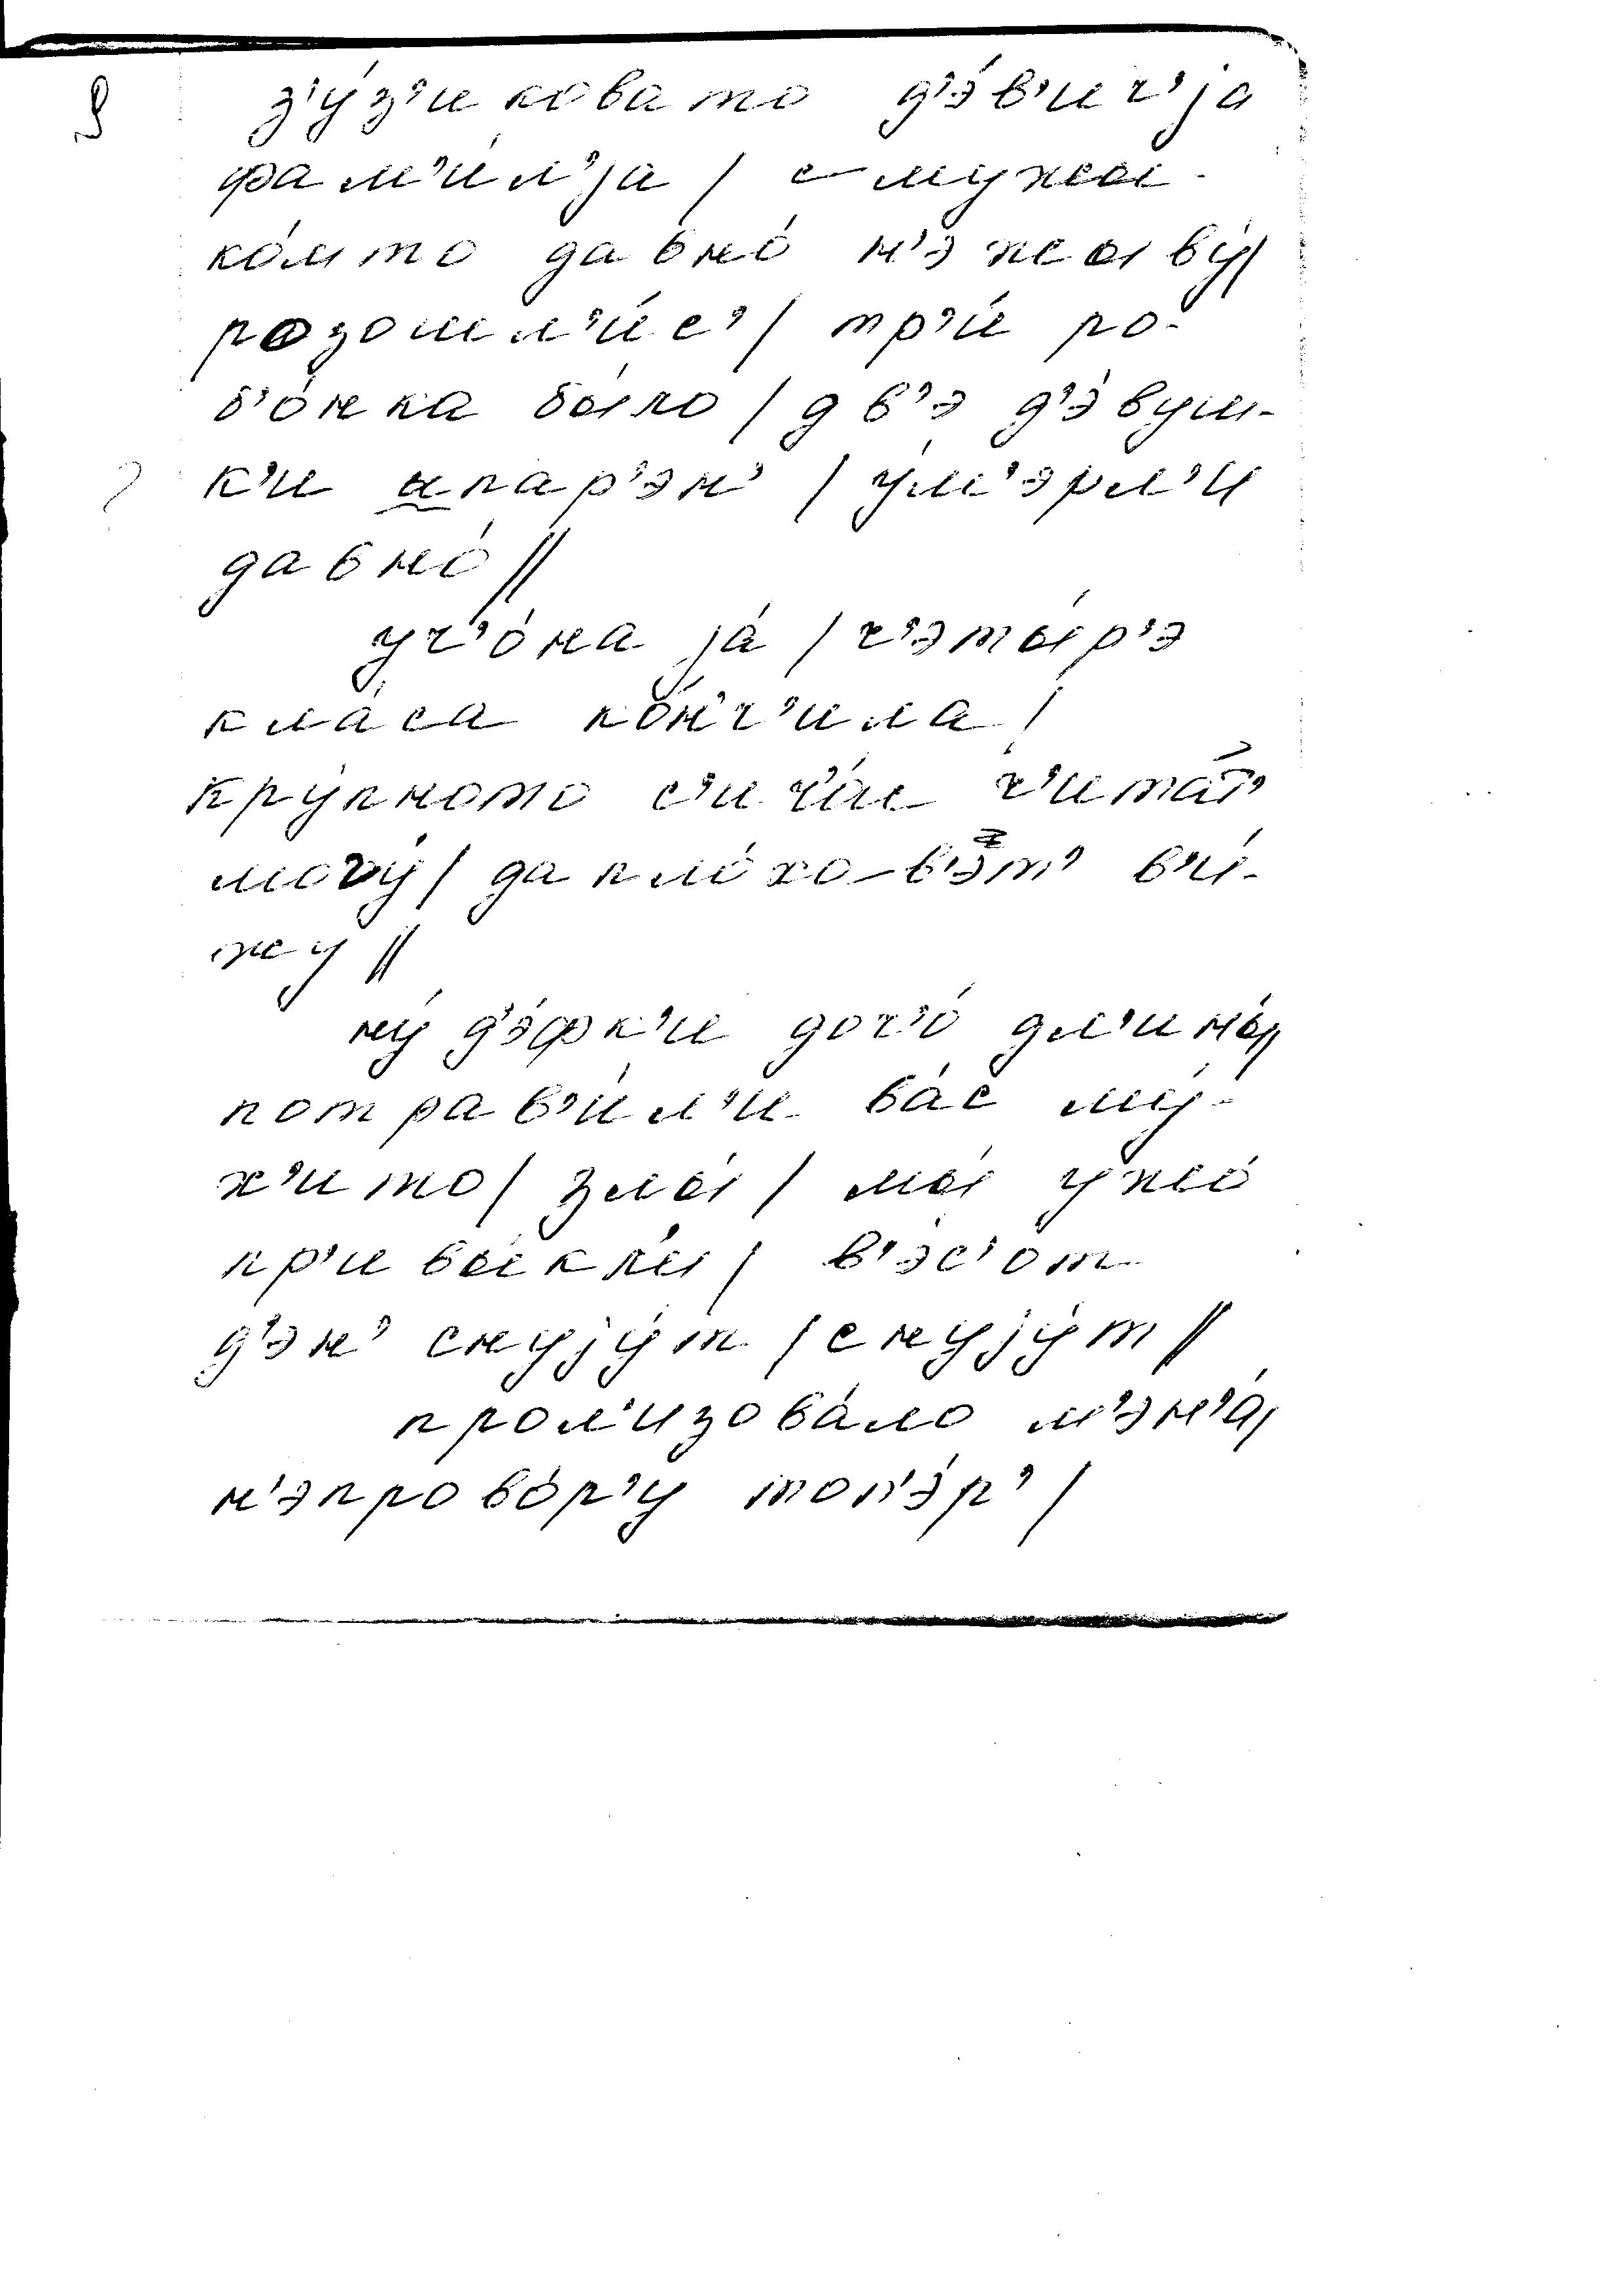 з'у́з'иковато д'э́в'ич'jа
фам'и́л'jа / с мужы-
ко́мто давно́ н'э жыву́ /
розошл'и́с' / тр'и́ ро-
б'о́нка бы́ло / дв'э д'э́вуш-
к'и и парэ́н' / у́м'эрл'и
давно́ //
уч'о́на jа́ / ч'эты́р'э
кла́са ко́н'ч'ила /
кру́пното с'ич'а́с ч'ита́т'
могу́ / да пло́хо в'э̄т' в'и́-
жу //
ну́ д'э́фк'и доч'о́ дл'ины́ /
потрав'и́л'и ва́с му́-
х'ито / злы́ / мы́ ужо́
пр'ивы́клы / в'э́с'от
д'эн' снуjу́т / снуjу́т //
прол'изова́ло м'эн'а́ /
н'эпрово́р'у топ'э́р' /